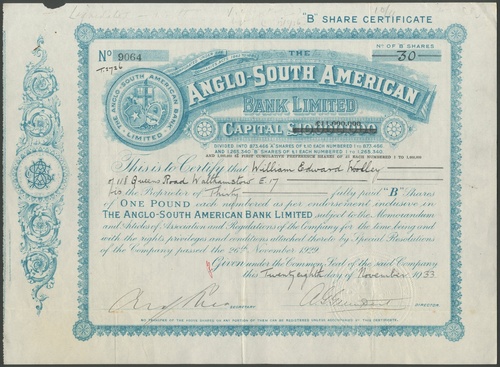 "B" SHARE CERTIFICATE
No 9064
No OF B SHARES
30
THE
ANGLO-SOUTH AMERICAN
BANK LIMITED
CAPITAL
THE ANGLO-SOUTH AMERICAN BANK LIMITED
DIVIDED INTO 873,466 A SHARES OF £10 EACH NUMBERED 1 TO 873,466
AND 1,265,340 B SHARES OF £1 EACH NUMBERED 1 TO 1,265,340.
This is to Certify that William Edward
of 118 Queens Road Walthamstow E.17
is the Proprietor of Thirty fully paid "B" Shares
of ONE POUND each numbered as per endorsement inclusive in
THE ANGLO-SOUTH AMERICAN BANK LIMITED subject to the Memorandum
and Articles of Association and Regulations of the Company for the time being and
with the rights, privileges and conditions attached thereto by Special Resolutions
of the Company passed the 26th November 1929.
Given under the Common Seal of the said Company
this Twenty eighth day of November 1933
SECRETARY
DIRECTOR
NO TRANSFER OF THE ABOVE SHARES OR ANY PORTION OF THEM CAN BE REGISTERED UNLESS ACCOMPANIED BY THIS CERTIFICATE.